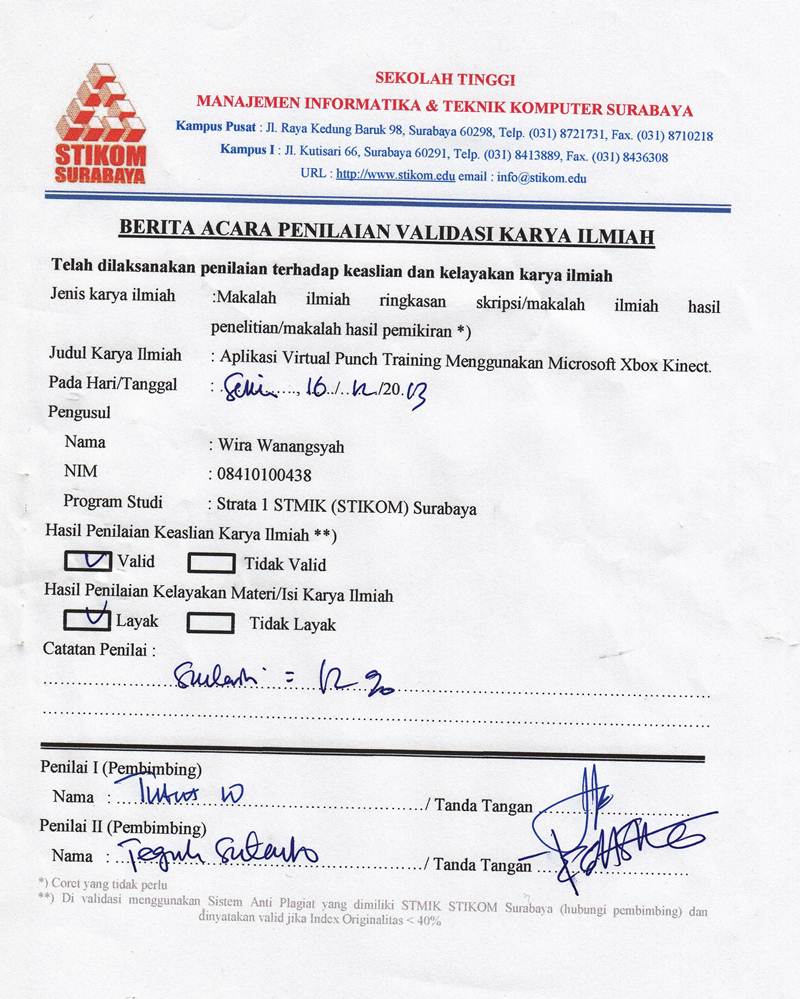 STIKOM
SURABAYA
SEKOLAH TINGGI
MANAJEMEN INFORMATIKA & TEKNIK KOMPUTER SURABAYA
Kampus Pusat : Jl. Raya Kedung Baruk 98, Surabaya 60298, Telp. (031) 8721731, Fax. (031) 8710218
Kampus I : Jl. Kutisari 66, Surabaya 60291, Telp. (031) 8413889, Fax. (031) 8436308
URL : http://www.stikom.edu email : info@stikom.edu
BERITA ACARA PENILAIAN VALIDASI KARYA ILMIAH
Telah dilaksanakan penilaian terhadap keaslian dan kelayakan karya ilmiah
Jenis karya ilmiah :Makalah ilmiah ringkasan skripsi/makalah ilmiah hasil
penelitian/makalah hasil pemikiran *)
Judul Karya Ilmiah : Aplikasi Virtual Punch Training Menggunakan Microsoft Xbox Kinect.
Pada Hari/Tanggal : Senin, 16/12/2013
Pengusul
Nama : Wira Wanangsyah
NIM : 08410100438
Program Studi : Strata 1 STMIK (STIKOM) Surabaya
Hasil Penilaian Keaslian Karya Ilmiah **)
Valid Tidak Valid
Hasil Penilaian Kelayakan Materi/Isi Karya Ilmiah
Layak Tidak Layak
Catatan Penilai :
= 12 %
Penilai I (Pembimbing)
Nama : Titus W / Tanda Tangan
Penilai II (Pembimbing)
Nama : Teguh Sutanto / Tanda Tangan
*) Coret yang tidak perlu
**) Di validasi menggunakan Sistem Anti Plagiat yang dimiliki STMIK STIKOM Surabaya (hubungi pembimbing) dan
dinyatakan valid jika Index Originalitas < 40%